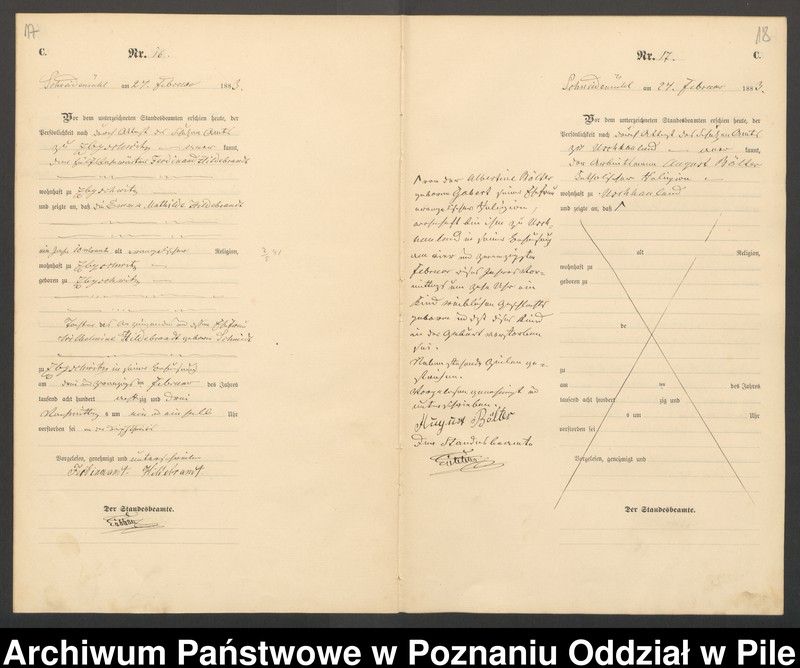 17
C.
Nr. 16.
Schneidemühl am 24. Februar 1883.
Vor dem unterzeichneten Standesbeamten erschien heute, der
Persönlichkeit nach durch Attest des Schulzen Amts
zu kannt,
Ferdinand Hildebrandt
wohnhaft zu
und zeigte an, daß die Emma Mathilde Hildebrandt
ein Jahr 10 Monate alt evangelischer Religion,
wohnhaft zu
geboren zu
Tochter des und dessen Ehefrau
Hildebrandt geborene Schmidt
zu in seiner Behausung
am drei und zwanzigsten Februar des Jahres
tausend acht hundert achtzig und drei
Nachmittags um ein und ein halb Uhr
verstorben sei
Vorgelesen, genehmigt und unterschrieben
Ferdinandt Hildebrandt
Der Standesbeamte.
18
Nr. 17.
C.
Schneidemühl am 24. Februar 1883.
Vor dem unterzeichneten Standesbeamten erschien heute, der
Persönlichkeit nach durch Attest des Schulzen Amts
zu Uschhauland kannt,
der August Bölter
katholischer Religion
wohnhaft zu Uschhauland
und zeigte an, daß
alt Religion,
wohnhaft zu
geboren zu
de
zu
am ten des Jahres
tausend acht hundert zig und
um Uhr
verstorben sei
Vorgelesen, genehmigt und
Der Standesbeamte.
von der Albertine Bölter
geborene seiner Ehefrau
evangelischer Religion,
wohnhaft bei ihm zu Usch-
hauland in seiner Behausung
am vier und zwanzigsten
Februar dieses Jahres Vor-
mittags um zehn Uhr ein
Kind weiblichen Geschlechts
geboren und daß dieses Kind
in der Geburt verstorben
sei.
Nebenstehende Zeilen ge-
strichen.
Vorgelesen genehmigt und
unterschrieben.
August Bölter
Der Standesbeamte
Archiwum Państwowe w Poznaniu Oddział w Pile